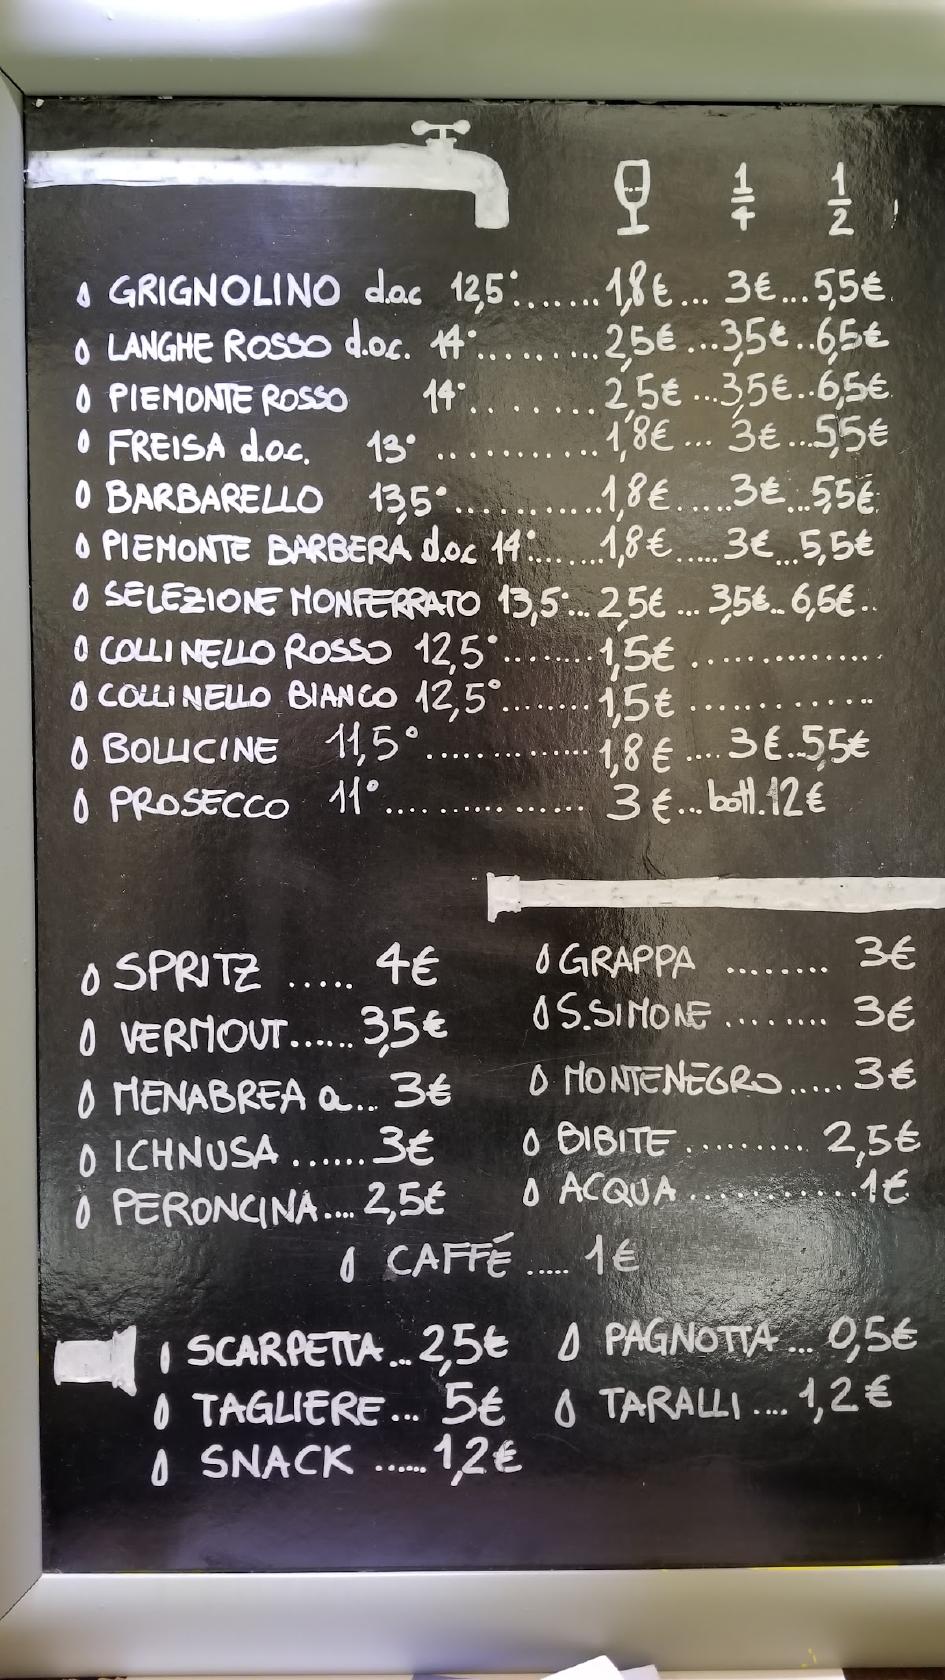 1/4 1/2
GRIGNOLINO d.o.c 12,5°....... 1,8€... 3€... 5,5€
LANGHE ROSSO d.o.c. 14°......... 2,5€...3,5€..6,5€
PIEMONTE ROSSO 14°......... 2,5€...3,5€..6,5€
FREISA d.o.c. 13° .......... 1,8€... 3€...5,5€
BARBARELLO 13,5° .......... 1,8€..... 3€...5,5€
PIEMONTE BARBERA d.o.c 14°....... 1,8€..... 3€... 5,5€
SELEZIONE MONFERRATO 13,5°... 2,5€... 3,5€.. 6,5€..
COLLINELLO ROSSO 12,5°........ 1,5€ ..............
COLLINELLO BIANCO 12,5°........ 1,5€ ............
BOLLICINE 11,5° .............. 1,8€.... 3€..5,5€
PROSECCO 11°............... 3€...bott.12€
SPRITZ ..... 4€
VERMOUT...... 3,5€
MENABREA a... 3€
ICHNUSA ....... 3€
PERONCINA.... 2,5€
GRAPPA ........ 3€
S.SIMONE ........ 3€
MONTENEGRO..... 3€
BIBITE ......... 2,5€
ACQUA ............1€
CAFFÉ ..... 1€
SCARPETTA... 2,5€
TAGLIERE... 5€
SNACK ...... 1,2€
PAGNOTTA... 0,5€
TARALLI.... 1,2€